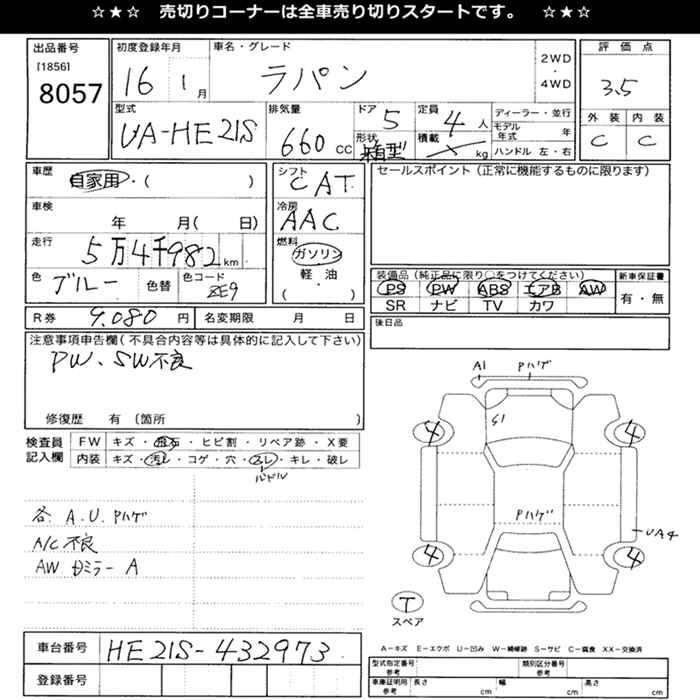 ☆★☆ 売切りコーナーは全車売り切りスタートです。 ☆★☆
出品番号
[1856]
8057
初度登録年月
16 1月
車名・グレード
ラパン
2WD
・
4WD
評価点
3.5
外装 内装
C C
型式
UA-HE21S
排気量
660 cc
ドア 5
形状
箱型
定員 4 人
積載 kg
ディーラー・並行
モデル年式 年
ハンドル 左・右
車歴
自家用・( )
車検
年 月( 日)
走行
5万4千982km
色 ブルー 色替 色コード ZE9
シフト
CAT
冷房
AAC
燃料
ガソリン
軽・油
( )
セールスポイント(正常に機能するものに限ります)
装備品(純正品に限り○をつけてください)
PS PW ABS エアB AW
SR ナビ TV カワ
新車保証書
有・無
R券 9,080円 名変期限 月 日
後日品
注意事項申告欄(不具合内容等は具体的に記入して下さい)
PW、SW不良
修復歴 有〔箇所 〕
検査員記入欄
FW キズ・飛石・ヒビ割・リペア跡・X要
内装 キズ・汚レ・コゲ・穴・スレ・キレ・破レ
ハンドル
各A.U.Pハゲ
A/C不良
AW ミラーA
A1 Pハゲ
S1
4 4
Pハゲ
UA4
4 4
T
スペア
A-キズ E-エクボ U-凹み W-補修跡 S-サビ C-腐食 XX-交換済
車台番号 HE21S-432973
登録番号
型式指定番号
参考
類別区分番号
参考
車庫証明用
参考
長さ cm 幅 cm 高さ cm